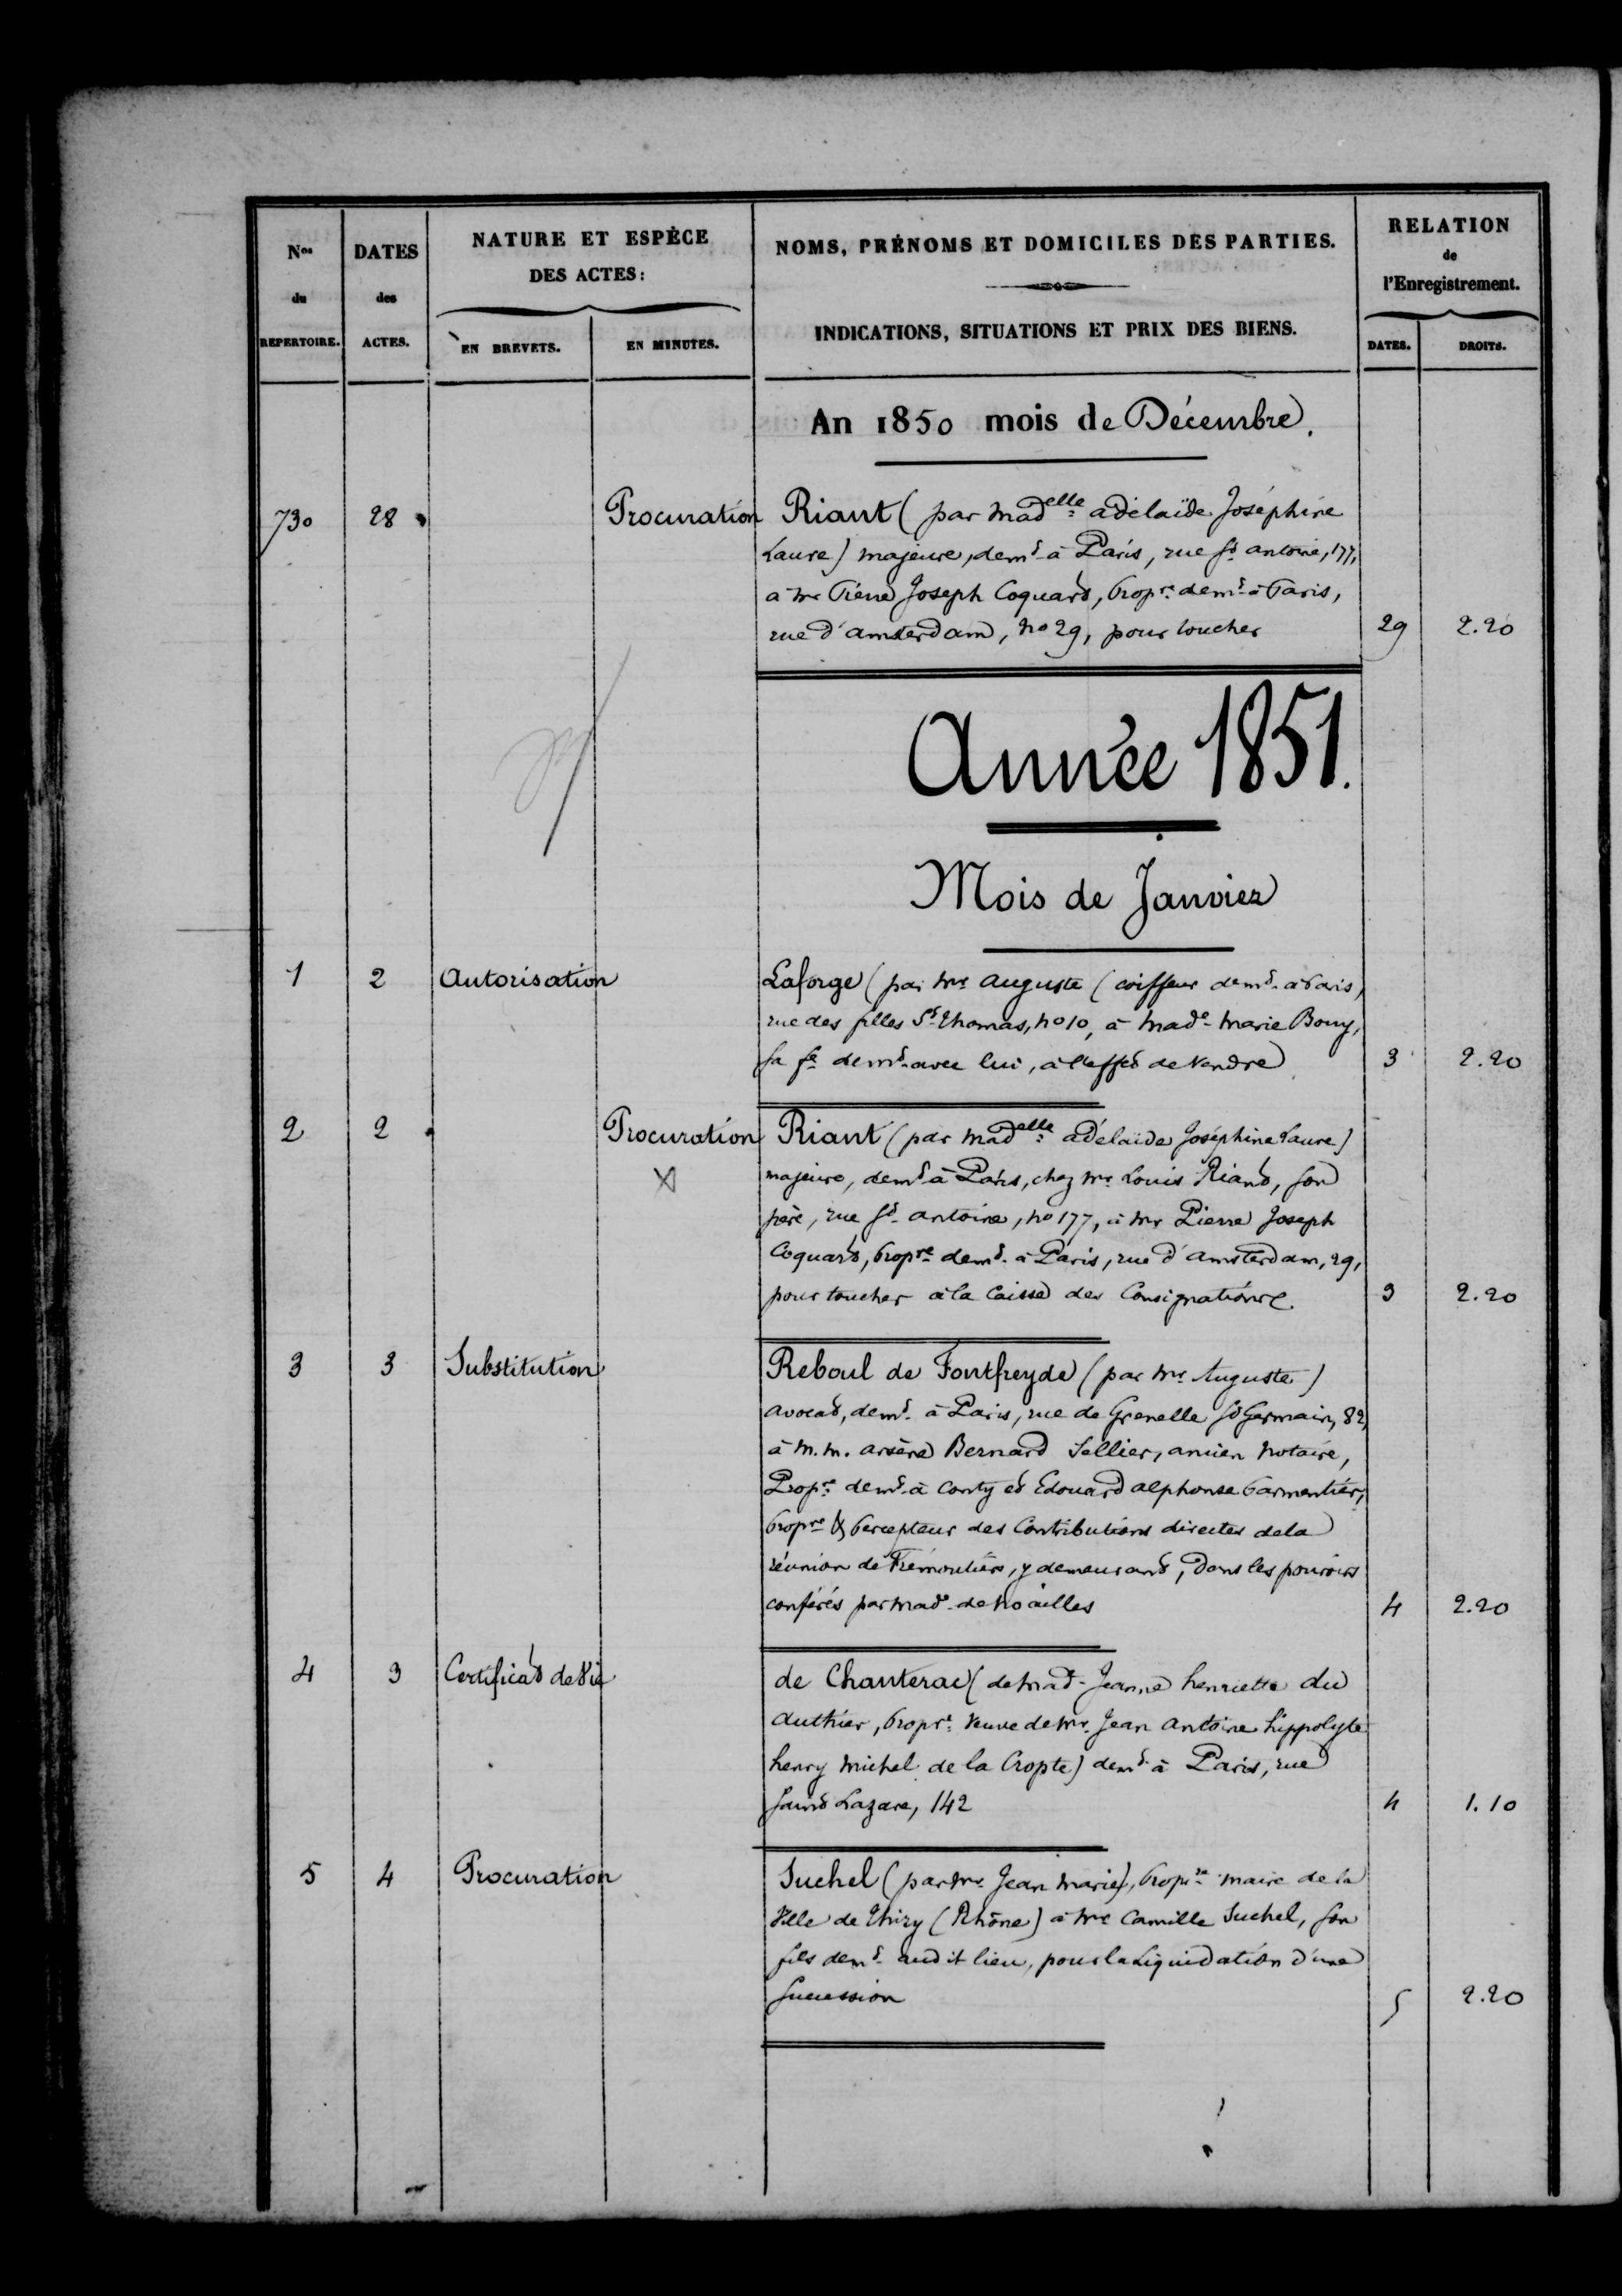 Nos du REPERTOIRE.
DATES des ACTES.
NATURE ET ESPÈCE
DES ACTES:
EN BREVETS.
EN MINUTES.
NOMS, PRÉNOMS ET DOMICILES DES PARTIES.
INDICATIONS, SITUATIONS ET PRIX DES BIENS.
RELATION
de
l'Enregistrement.
DATES.
DROITS.
An 1850 mois de Décembre.
730 28 Procuration Riant (par Madelle adélaïde Joséphine
Laure) majeure, demt à Paris, rue St antoine, 177,
a Mr Pierre Joseph Coquard, Propre demt à Paris,
rue d'amsterdam, no 29, pour toucher 29 2.20
Année 1851.
Mois de Janvier
1 2 Autorisation Laforge (par Mr Auguste (coiffeur demt à Paris,
rue des filles St Thomas, no 10, à Made Marie Bony,
sa fe demt avec lui, à l'effet de Vendre 3 2.20
2 2 Procuration Riant (par Madelle adélaïde Joséphine Laure)
majeure, demt à Paris, chez Mr Louis Riant, son
père, rue St antoine, no 177, à Mr Pierre Joseph
Coquard, Propre demt à Paris, rue d'amsterdam, 29,
pour toucher à la Caisse des Consignations 3 2.20
3 3 Substitution Reboul de Fontfreyde (par Mr Auguste)
avocat, demt à Paris, rue de Grenelle St Germain, 82,
à M.M. arsène Bernard Sellier, ancien Notaire,
Propre demt à Conty et Edouard alphonse Parmentier,
Propre & Percepteur des Contributions directes de la
réunion de Frémoutiers, y demeurant, Dans les pouvoirs
conférés par Made de Noailles 4 2.20
4 3 Certificat de Vie de Chanterac (de Made Jeanne henriette du
authier, Propre Veuve de Mr Jean Antoine hippolyte
henry Michel de la Cropte) demt à Paris, rue
Saint Lazare, 142 4 1.10
5 4 Procuration Suchel (par Mr Jean Marie), Propre maire de la
Ville de Thizy (Rhône) à Mr Camille Suchel, son
fils demt audit lieu, pour la Liquidation d'une
succession 5 2.20